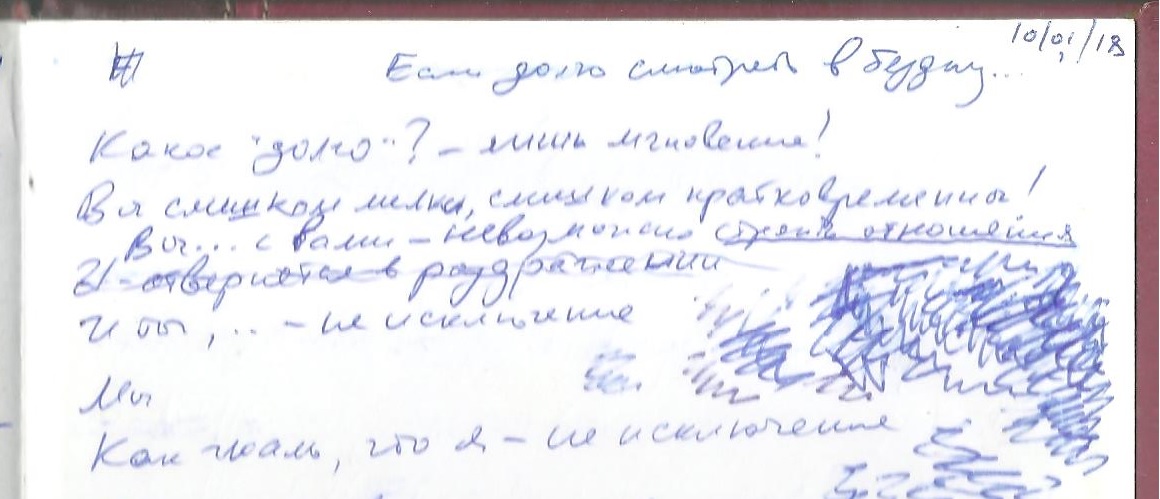 10/01/18
Если долго смотреть в бездну...
Какое "долго"? – лишь мгновение!
Вы слишком мелки, слишком кратковременны!
Вы... с Вами – невозможно строить отношения
И – отвернётся в раздражении
И ты, .. – не исключение
Мы
Как жаль, что я – не исключение